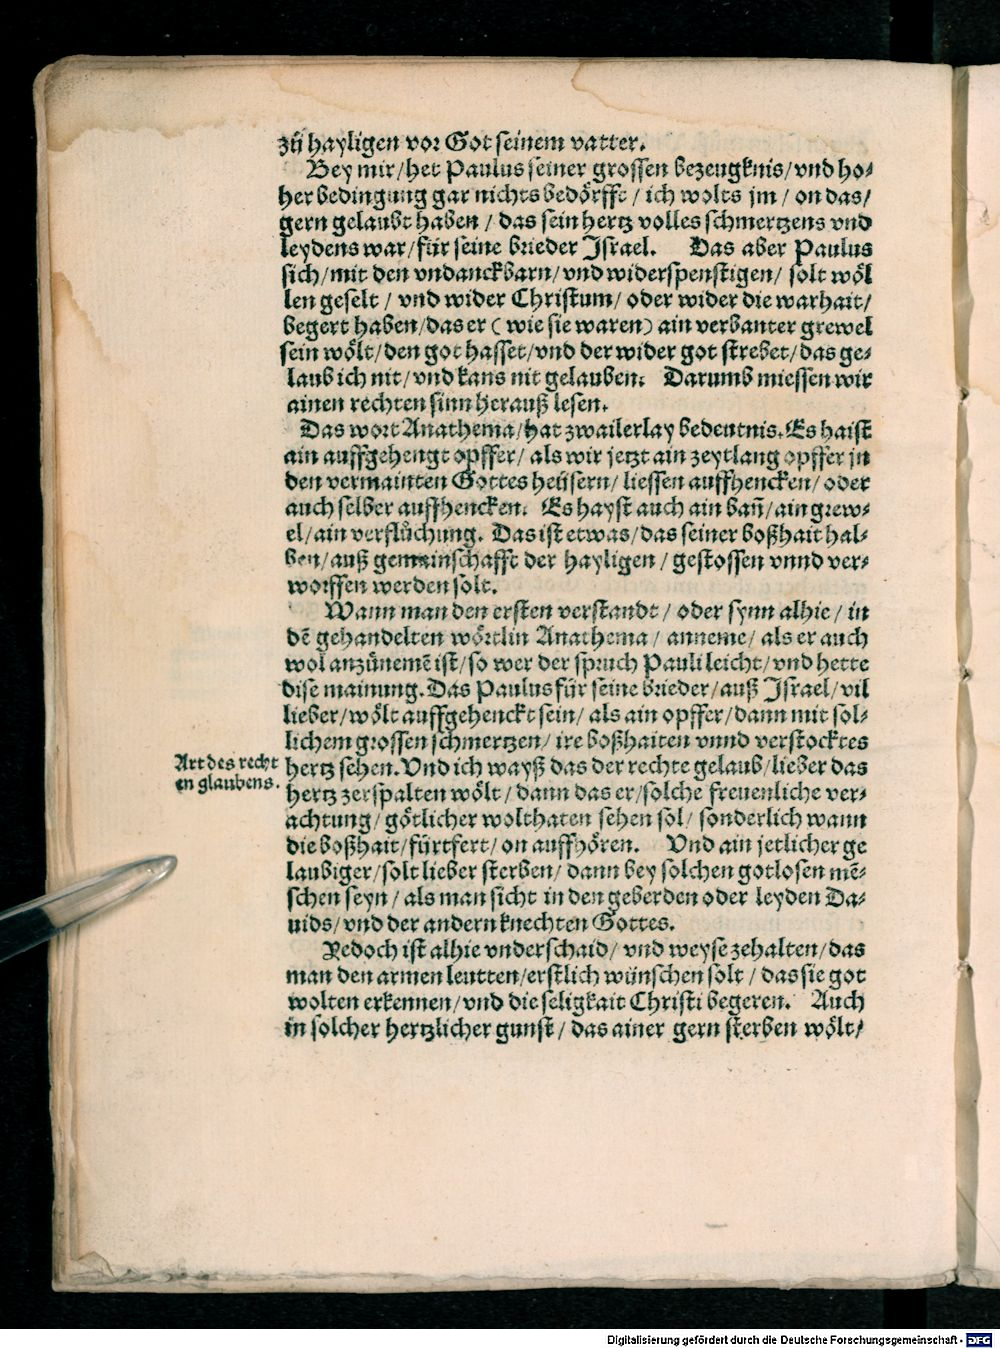 zů hayligen vor Got seinem vatter.
Bey mir/het Paulus seiner grossen bezeugknis/vnd ho-
her bedingung gar nichts bedörfft/ich wolts jm/on das/
gern gelaubt haben/das sein hertz volles schmertzens vnd
leydens war/für seine brieder Israel. Das aber Paulus
sich/mit den vndanckbarn/vnd widerspenstigen/solt wöl
len geselt/vnd wider Christum/oder wider die warhait/
begert haben/das er (wie sie waren) ain verbanter grewel
sein wölt/den got hasset/vnd der wider got strebet/das ge-
laub ich nit/vnd kans nit gelauben. Darumb miessen wir
ainen rechten sinn herauß lesen.
Das wort Anathema/hat zwailerlay bedeutnis. Es haist
ain auffgehengt opffer/als wir jetzt ain zeytlang opffer in
den vermainten Gottes heüsern/liessen auffhencken/oder
auch selber auffhencken. Es hayst auch ain bañ/ain grew-
el/ain verflůchung. Das ist etwas/das seiner boßhait hal-
ben/auß gemainschafft der hayligen/gestossen vnnd ver-
worffen werden solt.
Wann man den ersten verstandt/oder synn alhie/in
dē gehandelten wörtlin Anathema/anneme/als er auch
wol anzůnemē ist/so wer der spruch Pauli leicht/vnd hette
dise mainung. Das Paulus für seine brieder/auß Israel/vil
lieber/wölt auffgehenckt sein/als ain opffer/dann mit sol-
lichem grossen schmertzen/ire boßhaiten vnnd verstocktes
Art des recht
en glaubens.
hertz sehen. Vnd ich wayß das der rechte gelaub/lieber das
hertz zerspalten wölt/dann das er/solche freuenliche ver-
achtung/götlicher wolthaten sehen sol/sonderlich wann
die boßhait/fürtfert/on auffhören. Vnd ain jetlicher ge
laubiger/solt lieber sterben/dann bey solchen gotlosen mē-
schen seyn/als man sicht in den geberden oder leyden Da-
uids/vnd der andern knechten Gottes.
Yedoch ist alhie vnderschaid/vnd weyse zehalten/das
man den armen leutten/erstlich wünschen solt/das sie got
wolten erkennen/vnd die seligkait Christi begeren. Auch
in solcher hertzlicher gunst/das ainer gern sterben wölt/
Digitalisierung gefördert durch die Deutsche Forschungsgemeinschaft - DFG